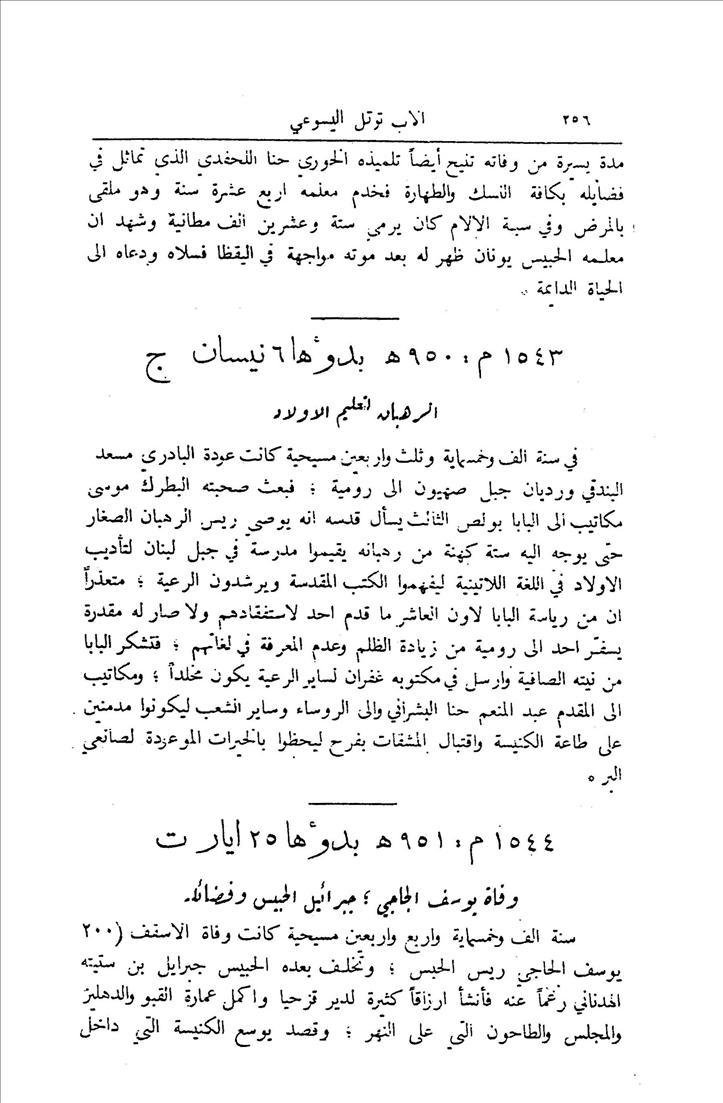 ٢٥٦ الاب توتل اليسوعي
مدة يسيرة من وفاته تنيح أيضاً تلميذه الخوري حنا اللحفدي الذي تماثل في
فضايله بكافة النسك والطهارة فخدم معلمه اربع عشرة سنة وهو ملقى
بالمرض وفي سبة الالام كان يرمي ستة وعشرين الف مطانية وشهد ان
معلمه الحبيس يونان ظهر له بعد موته مواجهة في اليقظا فسلاه ودعاه الى
الحياة الدايمة .
١٥٤٣ م : ٩٥٠ ه بدوٴها ٦ نيسان ج
الرهبان لتعليم الاولاد
في سنة الف وخمسماية وثلث واربعين مسيحية كانت عودة البادري مسعد
البندقي ورديان جبل صهيون الى رومية ؛ فبعث صحبته البطرك موسى
مكاتيب الى البابا بولص الثالث يسأل قدسه انه يوصي ريس الرهبان الصغار
حتى يوجه اليه ستة كهنة من رهبانه يقيموا مدرسة في جبل لبنان لتأديب
الاولاد في اللغة اللاتينية ليفهموا الكتب المقدسة ويرشدون الرعية ؛ متعذراً
ان من رياسة البابا لاون العاشر ما قدم احد لاستفقادهم ولا صار له مقدرة
يسفّر احد الى رومية من زيادة الظلم وعدم المعرفة في لغاتهم ؛ فتشكر البابا
من نيته الصافية وارسل في مكتوبه غفران لساير الرعية يكون مخلداً ؛ ومكاتيب
الى المقدم عبد المنعم حنا البشراني والى الروساء وساير الشعب ليكونوا مدمنين
على طاعة الكنيسة واقتبال المشقات بفرح ليحظوا بالخيرات الموعودة لصانعي
البر ٥
١٥٤٤ م : ٩٥١ ه بدوٴها ٢٥ ايار ت
وفاة يوسف الحاجي ؛ جبرائيل الحبيس وفضائله
سنة الف وخمسماية واربع واربعين مسيحية كانت وفاة الاسقف (٢٠٠
يوسف الحاجي ريس الحبس ؛ وتخلف بعده الحبيس جبرايل بن ستيته
الهدناني رغماً عنه فأنشأ ارزاقاً كثيرة لدير قزحيا واكمل عمارة القبو والدهليز
والمجلس والطاحون التي على النهر ؛ وقصد يوسع الكنيسة التي داخل